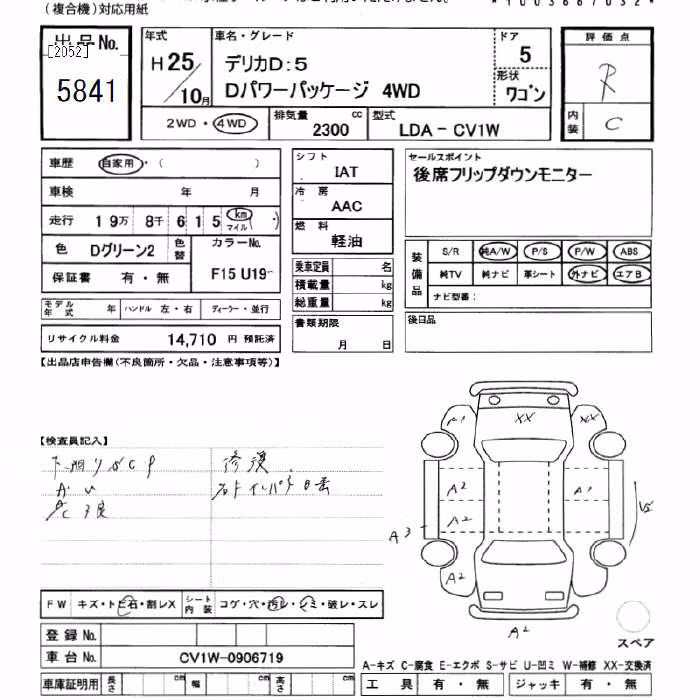 (複合機)対応用紙
出品No.
[2052]
5841
年式
H25/10月
車名・グレード
デリカD:5
Dパワーパッケージ 4WD
ドア
5
形状
ワゴン
評価点
R
内装
C
2WD・4WD
排気量 2300 cc
型式 LDA - CV1W
車歴 自家用・( )
車検 年 月
走行 19万 8千 615 km マイル ( )
色 Dグリーン2 色替
カラーNo.
F15 U19
保証書 有・無
モデル年式 年 ハンドル 左・右 ディーラー・並行
リサイクル料金 14,710 円 預託済
シフト
IAT
冷房
AAC
燃料
軽油
乗車定員 名
積載量 kg
総重量 kg
書類期限
月 日
セールスポイント
後席フリップダウンモニター
装備品
S/R 純A/W P/S P/W ABS
純TV 純ナビ 革シート 外ナビ エアB
ナビ型番:
後日品
【出品店申告欄(不良箇所・欠品・注意事項等)】
【検査員記入】
修復
XX
XX
A1
A2
A2
A1
A3
A2
A2
FW キズ・トビ石・割レX
シート内装 コゲ・穴・汚レ・シミ・破レ・スレ
登録No.
車台No. CV1W-0906719
車庫証明用 長さ cm 幅 cm 高さ cm
スペア
A-キズ C-腐食 E-エクボ S-サビ U-凹ミ W-補修 XX-交換済
工具 有・無 ジャッキ 有・無